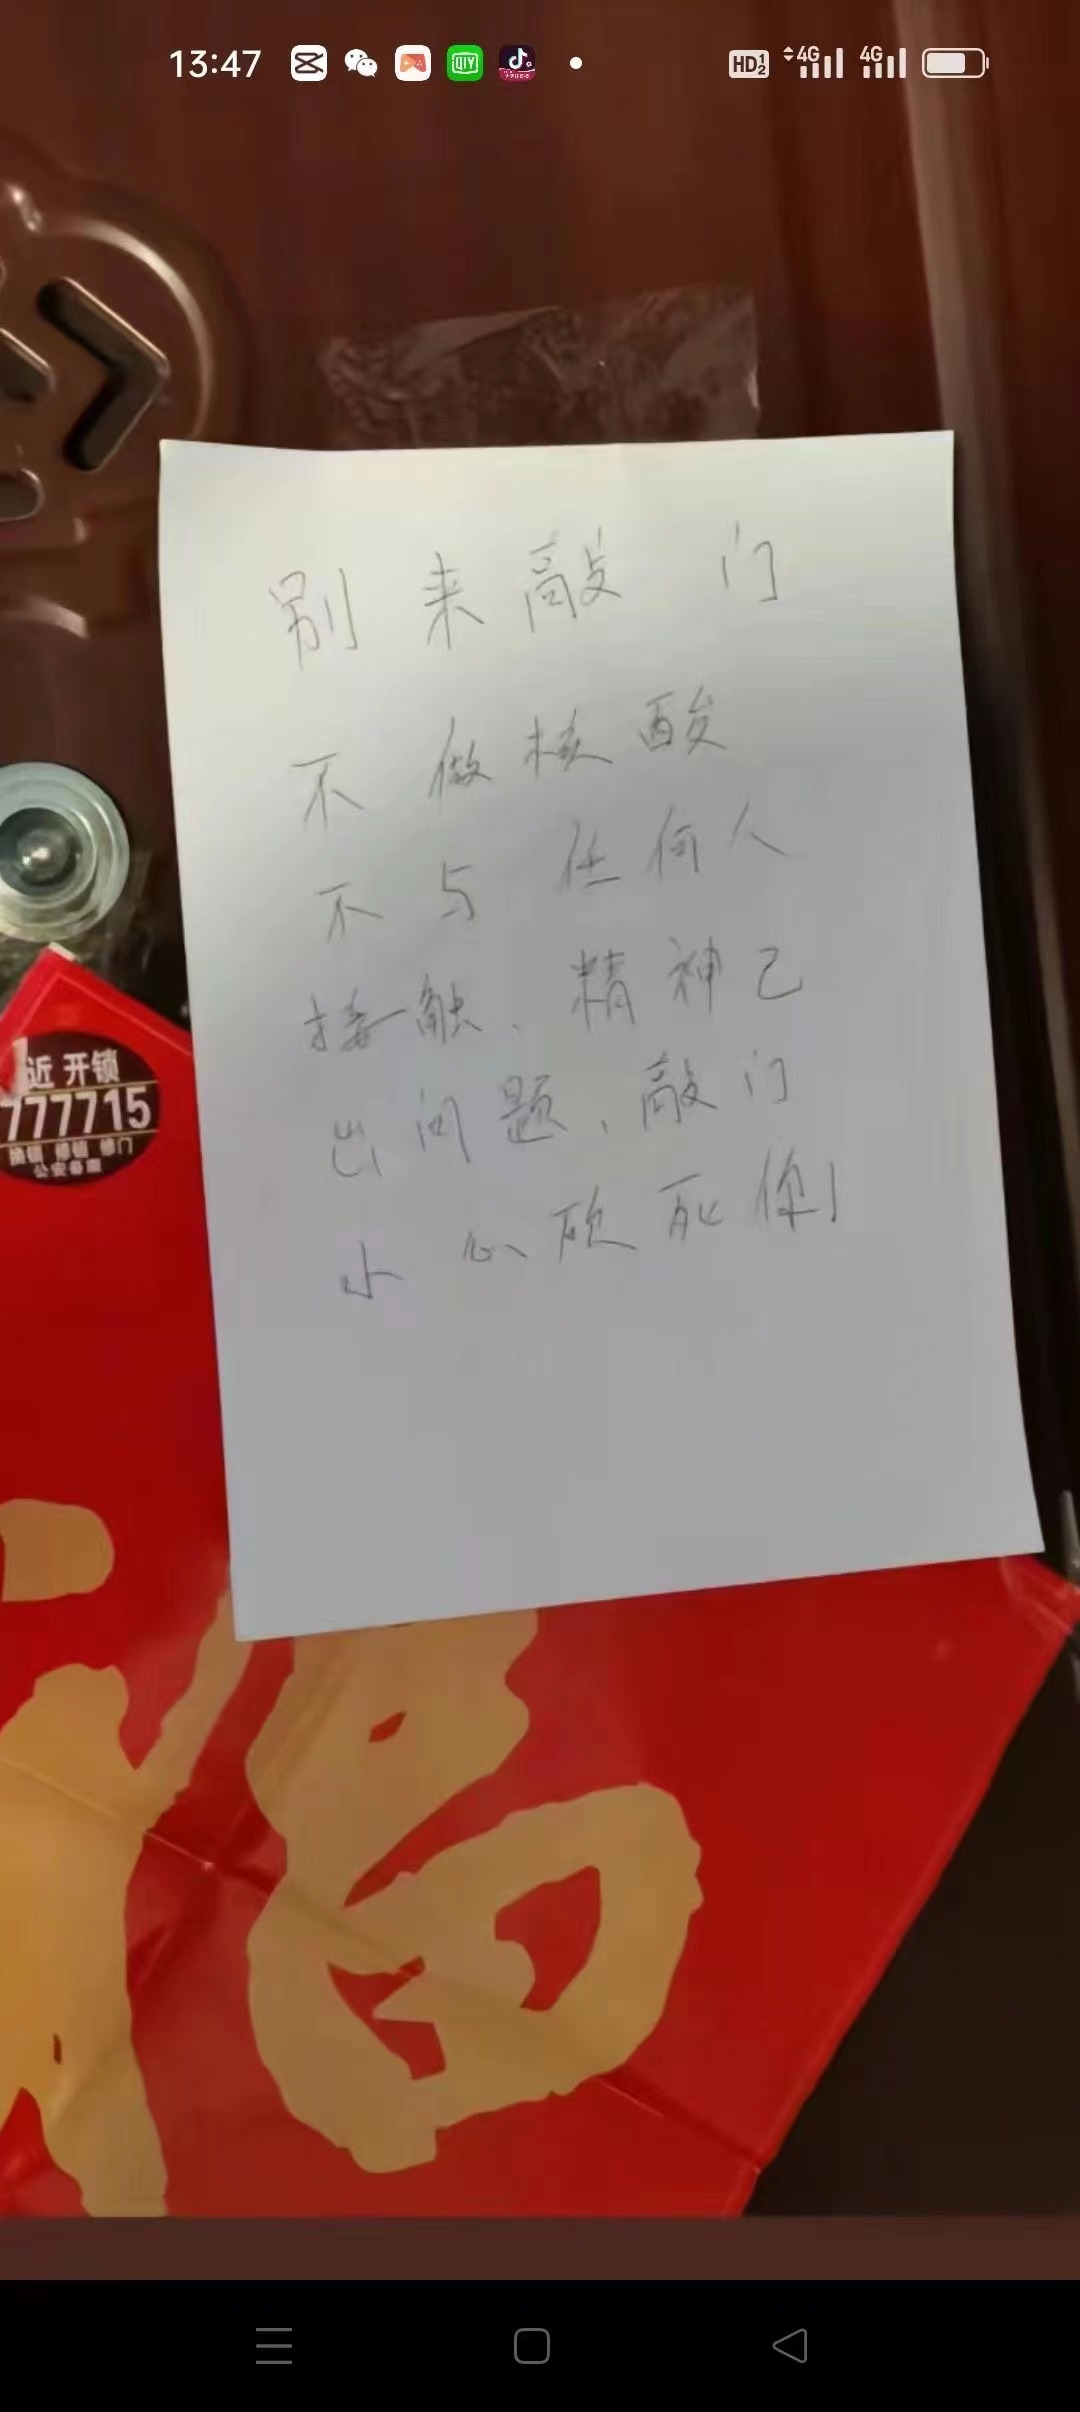 13:47
HD 1 2 4G 4G
QIY
别来敲门
不做核酸
不与任何人
接触、精神已
出问题、敲门
小心砍死你!
近 开锁
777715
换锁 修锁 修门
公安备案
福